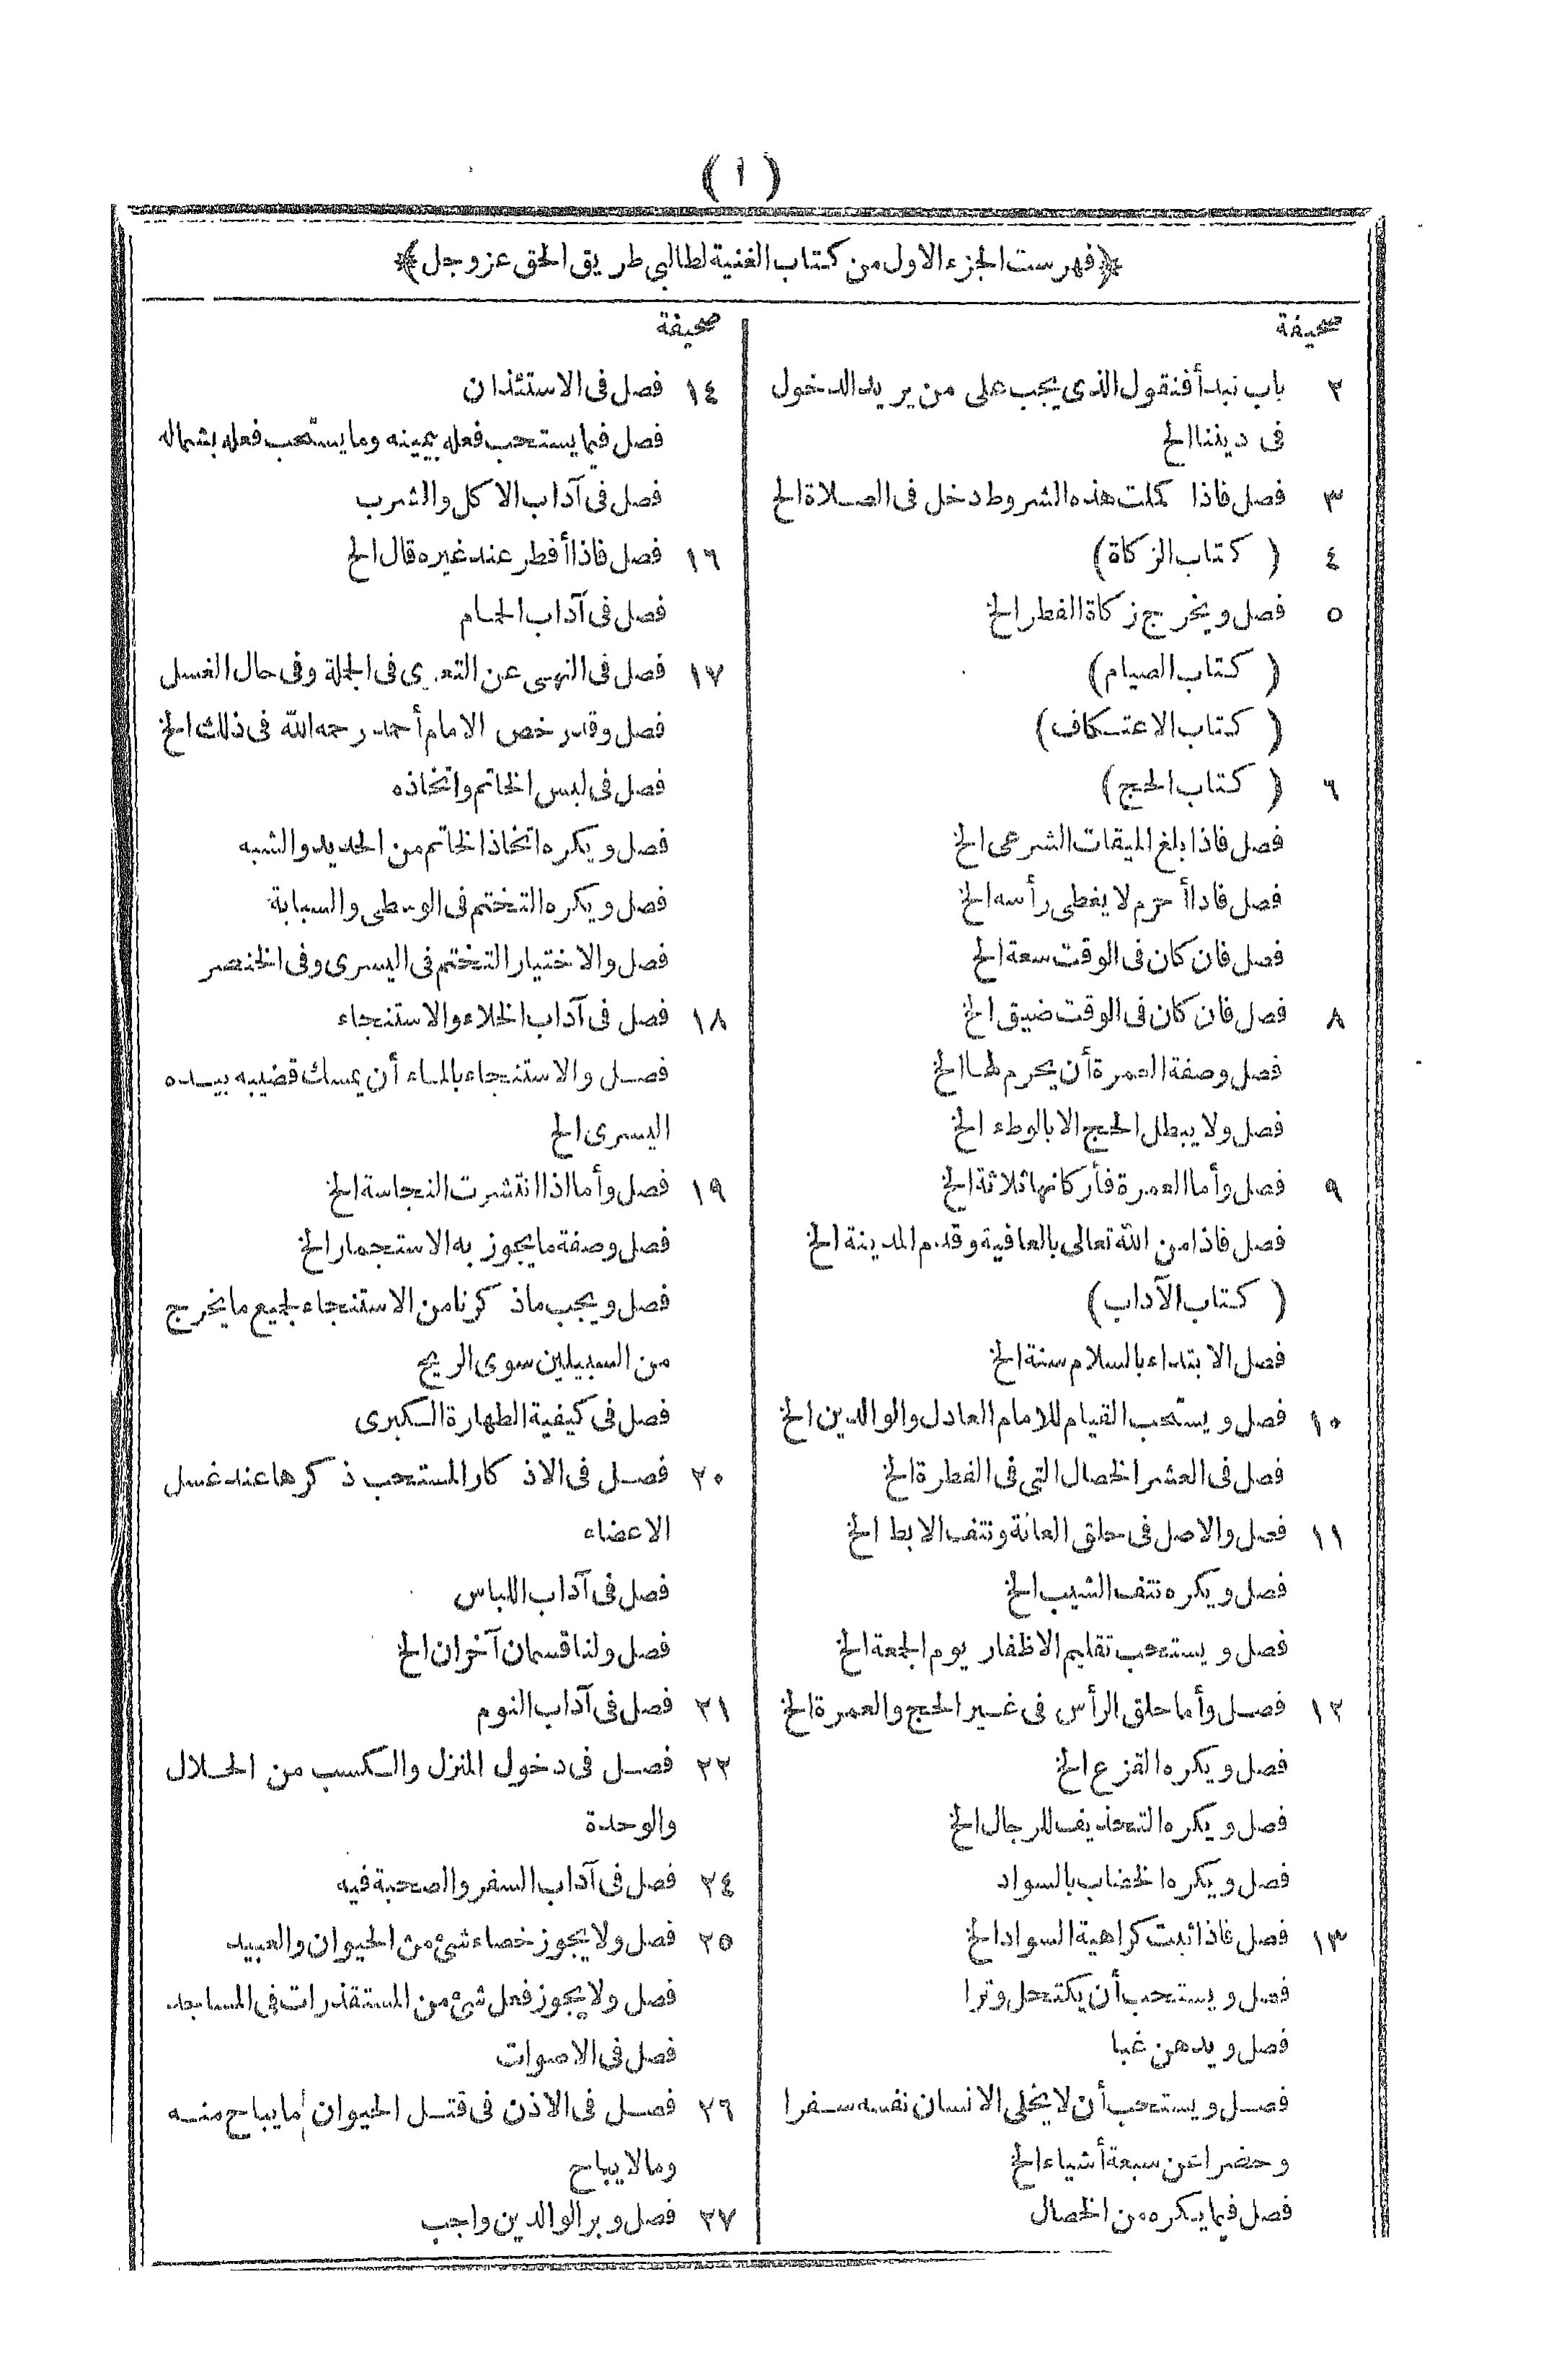 ( ١ )
﴿فهرست الجزء الاول من كتاب الغنية لطالبي طريق الحق عز وجل﴾
صحيفة
٢ باب نبدأ فنقول الذى يجب على من يريد الدخول
فى ديننا الخ
٣ فصل فاذا كملت هذه الشروط دخل فى الصلاة الخ
٤ ( كتاب الزكاة)
٥ فصل ويخرج زكاة الفطر الخ
( كتاب الصيام)
( كتاب الاعتكاف)
٦ ( كتاب الحج)
فصل فاذا بلغ الميقات الشرعى الخ
فصل فاذا أحرم لا يغطى رأسه الخ
فصل فان كان فى الوقت سعة الخ
٨ فصل فان كان فى الوقت ضيق الخ
فصل وصفة العمرة أن يحرم لها الخ
فصل ولا يبطل الحج الا بالوطء الخ
٩ فصل وأما العمرة فأركانها ثلاثة الخ
فصل فاذا من الله تعالى بالعافية وقدم المدينة الخ
( كتاب الآداب)
فصل الابتداء بالسلام سنة الخ
١٠ فصل ويستحب القيام للامام العادل والوالدين الخ
فصل فى العشر الخصال التى فى الفطرة الخ
١١ فصل والاصل فى حلق العانة ونتف الابط الخ
فصل ويكره نتف الشيب الخ
فصل ويستحب تقليم الاظفار يوم الجمعة الخ
١٢ فصل وأما حلق الرأس فى غير الحج والعمرة الخ
فصل ويكره القزع الخ
فصل ويكره التحذيف للرجال الخ
فصل ويكره الخضاب بالسواد
١٣ فصل فاذا ثبت كراهية السواد الخ
فصل ويستحب أن يكتحل وترا
فصل ويدهن غبا
فصل ويستحب أن لا يخلى الانسان نفسه سفرا
وحضرا عن سبعة أشياء الخ
فصل فيما يكره من الخصال
صحيفة
١٤ فصل فى الاستئذان
فصل فيما يستحب فعله بيمينه وما يستحب فعله بشماله
فصل فى آداب الاكل والشرب
١٦ فصل فاذا أفطر عند غيره قال الخ
فصل فى آداب الحمام
١٧ فصل فى النهى عن التعرى فى الجملة وفى حال الغسل
فصل وقد رخص الامام أحمد رحمه الله فى ذلك الخ
فصل فى لبس الخاتم واتخاذه
فصل ويكره اتخاذ الخاتم من الحديد والشبه
فصل ويكره التختم فى الوسطى والسبابة
فصل والاختيار التختم فى اليسرى وفى الخنصر
١٨ فصل فى آداب الخلاء والاستنجاء
فصل والاستنجاء بالماء أن يمسك قضيبه بيده
اليسرى الخ
١٩ فصل وأما اذا انتشرت النجاسة الخ
فصل وصفة ما يجوز به الاستجمار الخ
فصل ويجب ماذكرنا من الاستنجاء لجميع ما يخرج
من السبيلين سوى الريح
فصل فى كيفية الطهارة الكبرى
٢٠ فصل فى الاذكار المستحب ذكرها عند غسل
الاعضاء
فصل فى آداب اللباس
فصل ولنا قسمان آخران الخ
٢١ فصل فى آداب النوم
٢٢ فصل فى دخول المنزل والكسب من الحلال
والوحدة
٢٤ فصل فى آداب السفر والصحبة فيه
٢٥ فصل ولا يجوز خصاء شئ من الحيوان والعبيد
فصل ولا يجوز فعل شئ من المستقذرات فى المساجد
فصل فى الاصوات
٢٦ فصل فى الاذن فى قتل الحيوان ما يباح منه
وما لا يباح
٢٧ فصل وبر الوالدين واجب